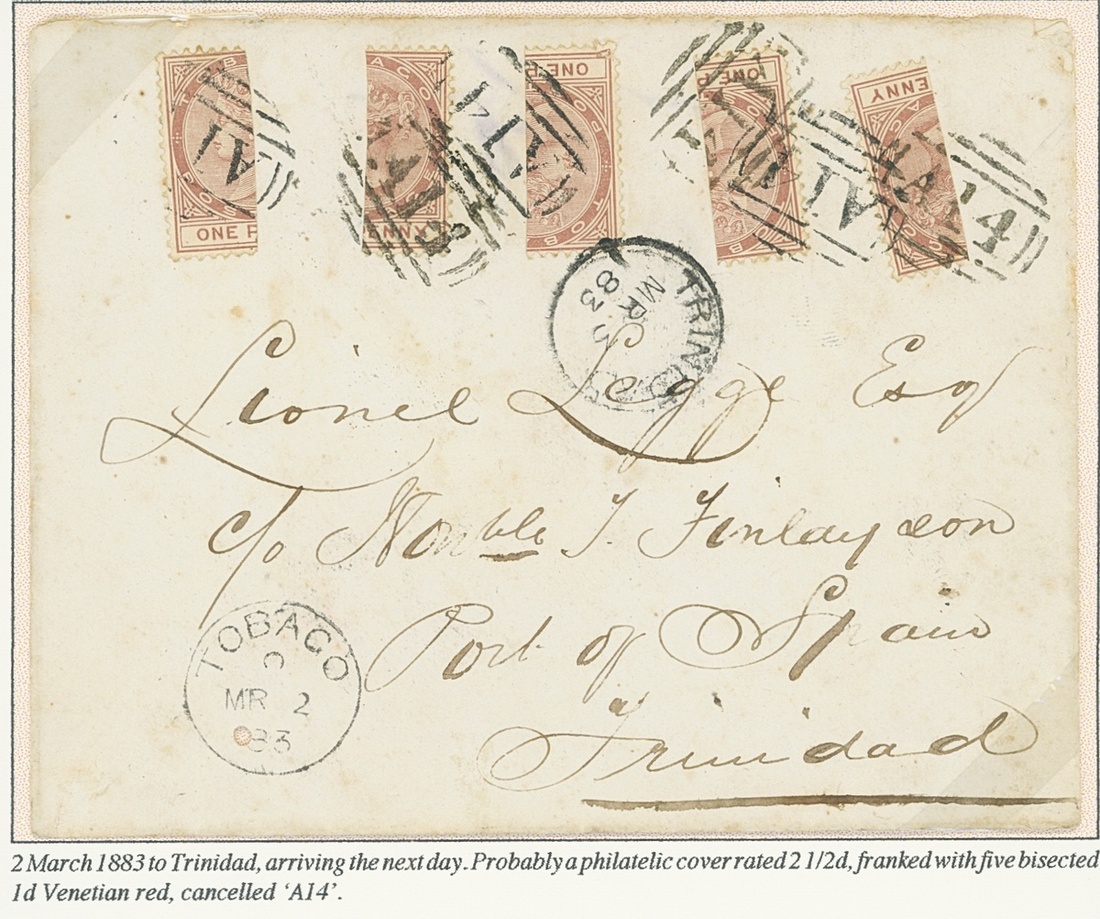 ONE P
ANNE
ONE
ONE P
ENNY
A14
A14
TRINIDAD
MR
83
Lionel Legge Esq
c/o Noble T. Finlayson
Port of Spain
Trinidad
TOBAGO
MR 2
83
2 March 1883 to Trinidad, arriving the next day. Probably a philatelic cover rated 2 1/2d, franked with five bisected
1d Venetian red, cancelled ‘A14’.